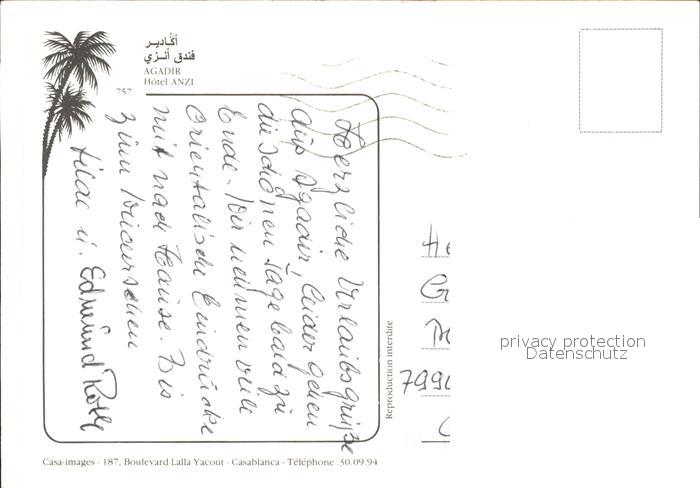 أڭادير
فندق أنزي
AGADIR
Hôtel ANZI
757
Herzliche Urlaubsgrüße
aus Agadir, leider gehen
die schönen Tage bald zu
Ende. Wir nehmen viele
orientalische Eindrücke
mit nach Hause. Bis
zum Wiedersehen
Hilde u. Edmund
Reproduction interdite
He
G
799
privacy protection
Datenschutz
Casa-images - 187, Boulevard Lalla Yacout - Casablanca - Téléphone :30.09.94